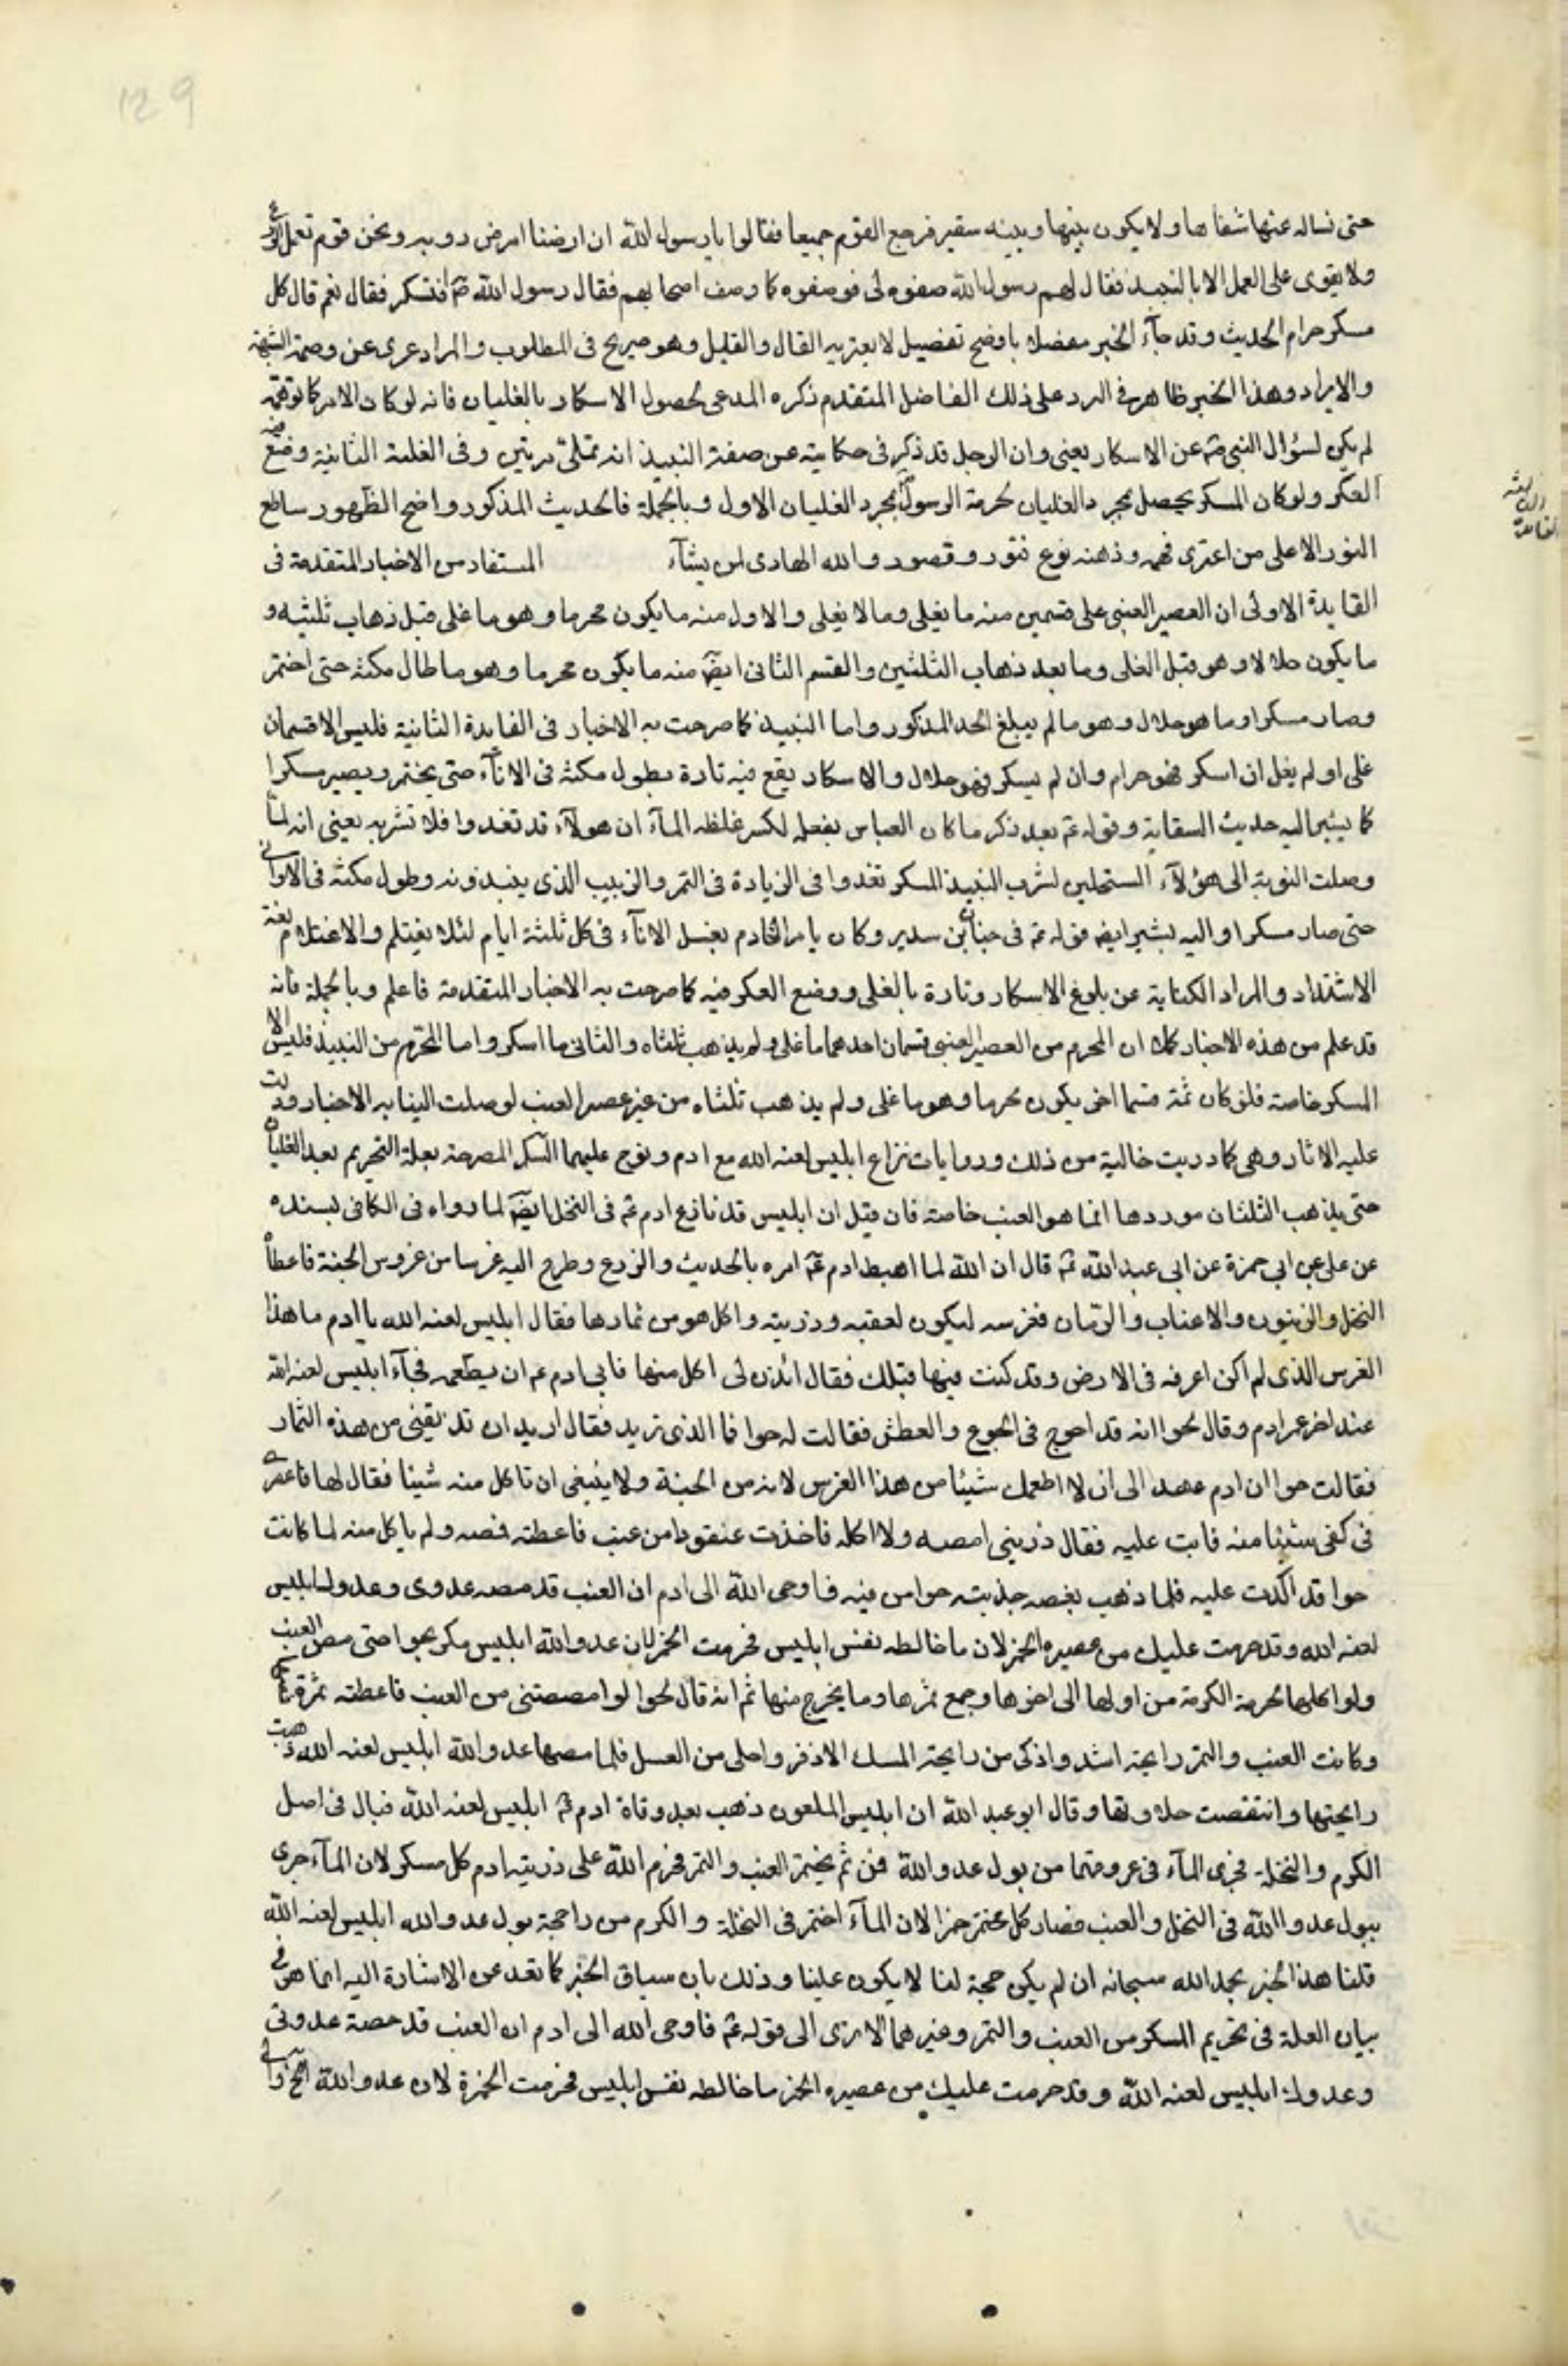 129
حتى نساله عنها شفاها ولا يكون بينها وبينه سفير فرجع القوم جميعا فقالوا يا رسول الله ان ارضنا ارض دويه ونحن قوم نعمل الزرع
ولا نقوى على العمل الا بالنبيذ فقال لهم رسول الله صفوه لى فوصفوه كما وصف اصحابهم فقال رسول الله صم افتسكر فقال نعم قال كل
مسكر حرام الحديث وقد جآء الخبر مفصلا باوضح تفصيل لا يعتريه القال والقليل وهو صريح فى المطلوب والمراد عرى عن وصمة الشبهة
والايراد وهذا الخبر ظاهر فى الرد على ذلك الفاضل المتقدم ذكره المدعى لحصول الاسكار بالغليان فانه لو كان الامر كما توهمه
لم يكن لسؤال النبى صم عن الاسكار معنى وان الرجل قد ذكر فى حكايته عن صفة النبيذ انه يمتلى مرتين وفى الغلية الثانية وضع فيه
العكر ولو كان المسكر يحصل بمجرد الغليان لحرمه الرسول بمجرد الغليان الاول وبالجملة فالحديث المذكور واضح الظهور ساطع
النور الا على من اعترى فهمه وذهنه نوع فتور وقصور والله الهادى لمن يشآء المستفاد من الاخبار المتقدمة فى
الفايدة الثالثة
الفايدة الاولى ان العصير العنبى على قسمين منه ما يغلى وما لا يغلى والاول منه ما يكون محرما وهو ما غلى قبل ذهاب ثلثيه و
ما يكون حلالا وهو قبل الغلى وما بعد ذهاب الثلثين والقسم الثانى ايضا منه ما يكون محرما وهو ما طال مكثه حتى اختمر
وصار مسكرا وما هو حلال وهو ما لم يبلغ الحد المذكور واما النبيذ كما صرحت به الاخبار فى الفايدة الثانية فليس الا قسمان
غلى او لم يغل ان اسكر فهو حرام وان لم يسكر فهو حلال والاسكار يقع فيه تارة بطول مكثه فى الانآء حتى يختمر ويصير مسكرا
كما يشير اليه حديث السقاية وقوله عم بعد ذكر ما كان العباس يفعله لكسر غلظه المآء ان هولآء قد تعدوا فلا تشربه يعنى انه لما
وصلت النوبة الى هؤلآء المستحلين لشرب النبيذ المسكر تعدوا فى الزيادة فى التمر والزبيب الذى ينبذونه وطول مكثه فى الاوانى
حتى صار مسكرا واليه يشير ايضا قوله عم فى حنان بن سدير وكان يامر الخادم بغسل الانآء فى كل ثلثة ايام لئلا يغتلم والاغتلام لغة
الاشتداد والمراد الكناية عن بلوغ الاسكار وتارة بالغلى ووضع العكر فيه كما صرحت به الاخبار المتقدمة فاعلم وبالجملة فانه
قد علم من هذه الاخبار كلها ان المحرم من العصير العنبى قسمان احدهما ما غلى ولم يذهب ثلثاه والثانى ما اسكر واما المحرم من النبيذ فليس الا
المسكر خاصة فلو كان ثمة قسما اخر يكون محرما وهو ما غلى ولم يذهب ثلثاه من غير عصير العنب لوصلت الينا به الاخبار ودلت
عليه الاثار وهى كما دريت خالية من ذلك وروايات نزاع ابليس لعنه الله مع ادم ونوح عليهما السلم المصرحة بعلة التحريم بعد الغليان
حتى يذهب الثلثان موردها انما هو العنب خاصة فان قيل ان ابليس قد نازع ادم عم فى النخل ايضا لما رواه فى الكافى بسنده
عن على بن ابى حمزة عن ابى عبد الله عم قال ان الله لما اهبط ادم عم امره بالحديث والزرع وطرح اليه غرسا من غروس الجنة فاعطاه
النخل والزيتون والاعناب والرمان فغرسه ليكون لعقبه وذريته واكل هو من ثمارها فقال ابليس لعنه الله يا ادم ما هذا
الغرس الذى لم اكن اعرفه فى الارض وقد كنت فيها قبلك فقال ائذن لى اكل منها فابى ادم عم ان يطعمه فجآء ابليس لعنه الله
عند اخر عمر ادم وقال لحوا انه قد احوج فى الجوع والعطش فقالت له حوا فما الذى تريد فقال اريد ان تذيقينى من هذه الثمار
فقالت حوا ان ادم عهد الى ان لا اطعمك شيئا من هذا الغرس لانه من الجنة ولا ينبغى ان تاكل منه شيئا فقال لها فاعصرى
فى كفى شيئا منه فابت عليه فقال ذرينى امصه ولا اكله فاخذت عنقودا من عنب فاعطته فمصه ولم ياكل منه لما كانت
حوا قد اكدت عليه فلما ذهب يعصه جذبته حوا من فيه فاوحى الله الى ادم ان العنب قد مصه عدوى وعدوك ابليس
لعنه الله وقد حرمت عليك من عصيره الخمر لان ما خالطه نفس ابليس فحرمت الخمر لان عدو الله ابليس مكر بحوا حتى مص العنب
ولو اكلها لحرمة الكرمة من اولها الى اخرها وجمع ثمرها وما يخرج منها ثم انه قال لحوا لو امصصتنى من العنب فاعطته تمرة
وكانت العنب والتمر رايحة اشد واذكى من رايحة المسك الاذفر واحلى من العسل فلما مصها عدو الله ابليس لعنه الله ذهبت
رايحتها وانتقصت حلاوتها وقال ابو عبد الله ان ابليس الملعون ذهب بعد وفاة ادم عم ابليس لعنه الله فبال فى اصل
الكرم والنخلة فجرى المآء فى عروقهما من بول عدو الله فمن ثم يختمر العنب والتمر فحرم الله على ذريته ادم كل مسكر لان المآء جرى
ببول عدو الله فى النخل والعنب فصار كل مختمر خمرا لان المآء اختمر فى النخلة والكرم من رايحة بول عدو الله ابليس لعنه الله
قلنا هذا الخبر بحمد الله سبحانه ان لم يكن حجة لنا لا يكون علينا وذلك بان سياق الخبر كما تعد عن الاشارة اليه انما هو فى
بيان العلة فى تحريم المسكر من العنب والتمر وغيرهما الا ترى الى قوله عم فاوحى الله الى ادم ان العنب قد مصه عدوى
وعدوك ابليس لعنه الله وقد حرمت عليك من عصيره الخمر ما خالطه نفس ابليس فحرمت الخمرة لان عدو الله الخ